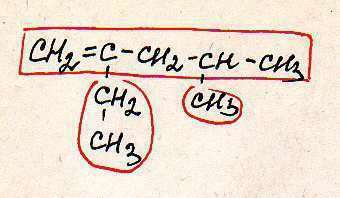 CH2=C-CH2-CH-CH3
CH2 CH3
CH3